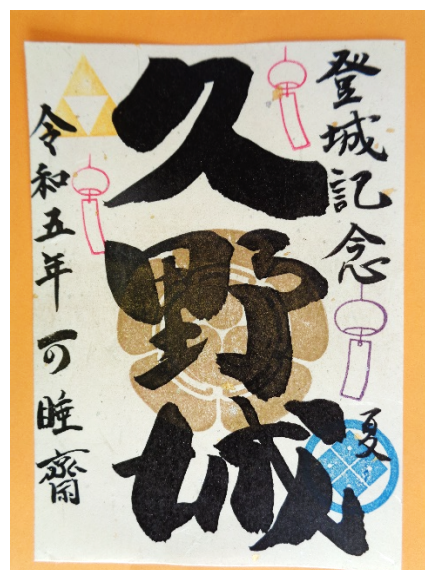 登城記念
夏
久野城
令和五年 可睡齋